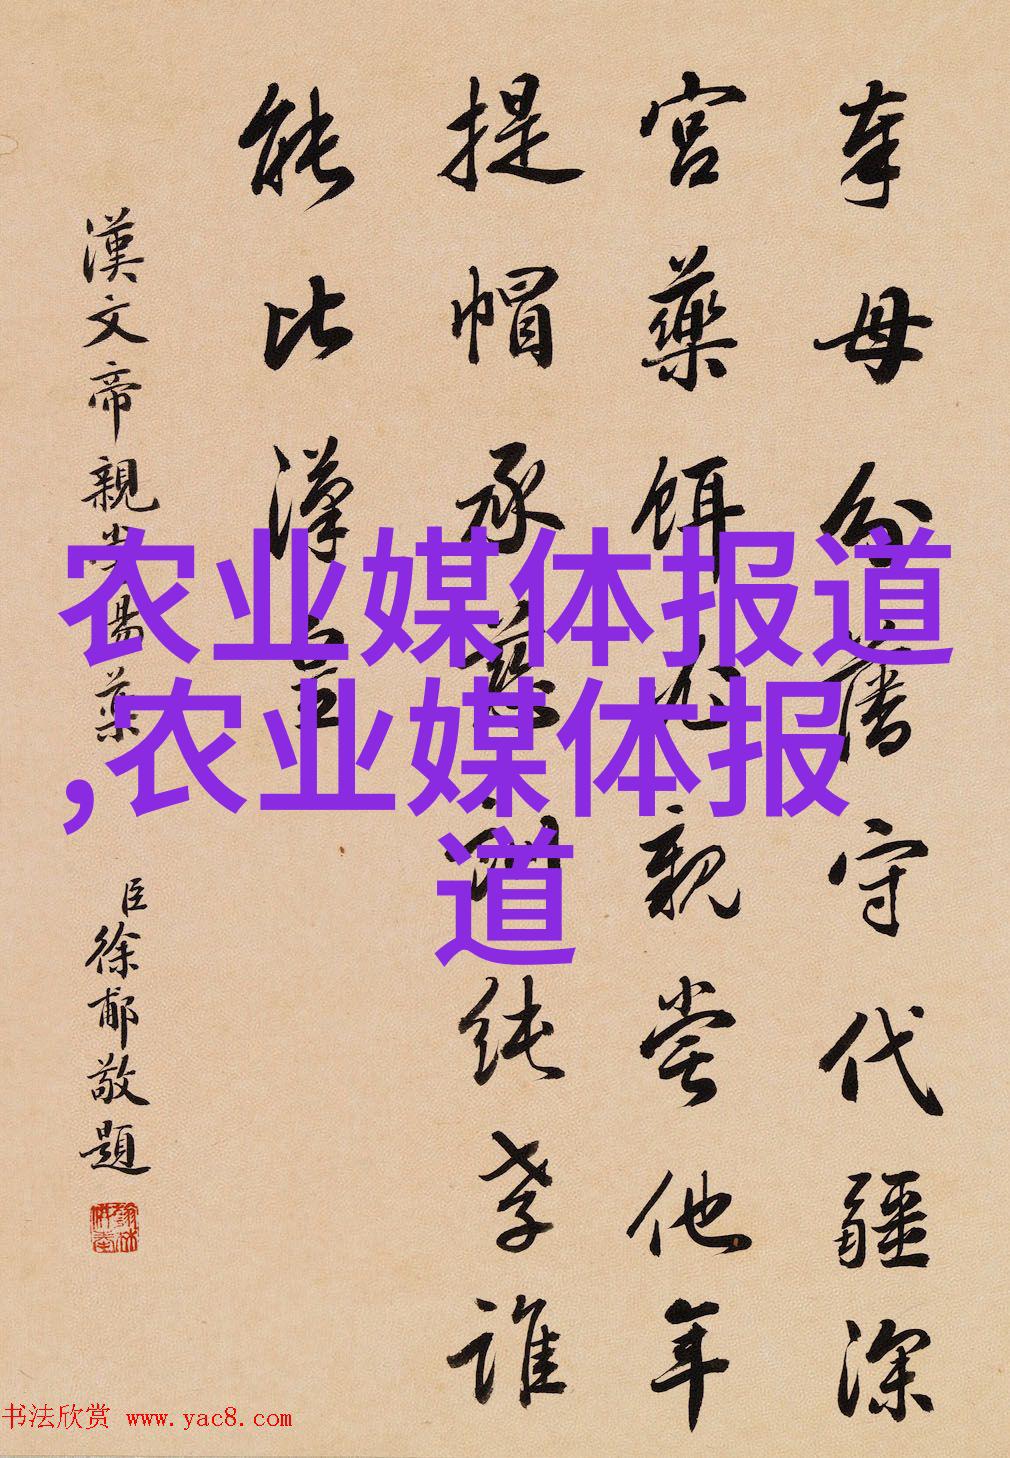 奉母分藩守代疆深
宮藥餌必親嘗他年
提帽承慈訓純孝誰
能比漢皇
漢文帝親嘗湯藥
臣徐郙敬題
农业媒体报道
,农业媒体报
道
书法欣赏 www.yac8.com